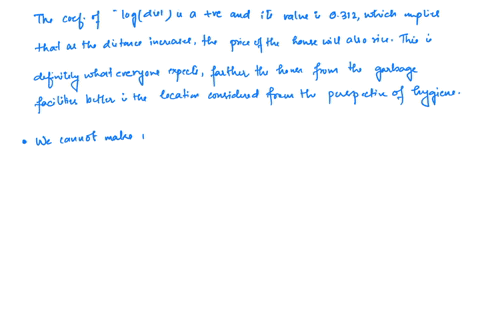 The coef. of "log(dist) is a +ve and its value is 0.312, which implies
that as the distance increases, the price of the house will also rise. This is
definitely what everyone expects, farther the house from the garbage
facilities better is the location considered from the perspective of hygiene.
• We cannot make